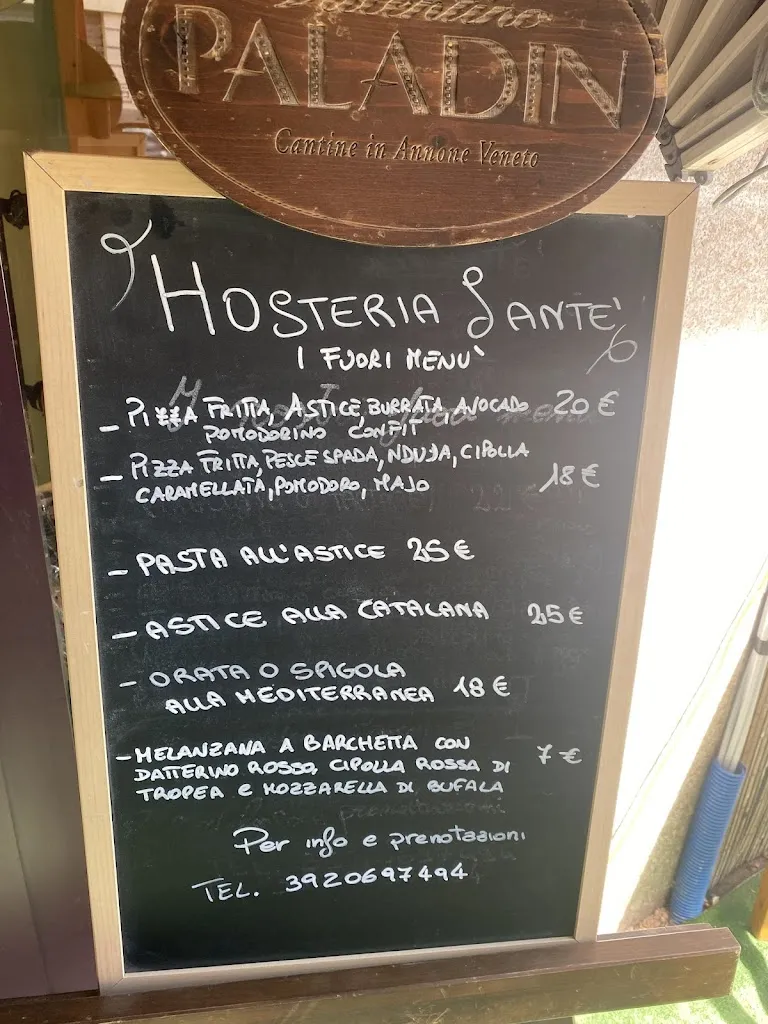 PALADIN
Cantine in Annone Veneto
HOSTERIA SANTE'
I FUORI MENU'
- PIZZA FRITTA, ASTICE, BURRATA, AVOCADO 20 €
POMODORINO CONFIT
- PIZZA FRITTA, PESCE SPADA, NDUJA, CIPOLLA
CARAMELLATA, POMODORO, MAJO 18 €
- PASTA ALL'ASTICE 25 €
- ASTICE ALLA CATALANA 25 €
- ORATA O SPIGOLA
ALLA MEDITERRANEA 18 €
- MELANZANA A BARCHETTA CON 7 €
DATTERINO ROSSO, CIPOLLA ROSSA DI
TROPEA E MOZZARELLA DI BUFALA
Per info e prenotazioni
TEL. 3920697494